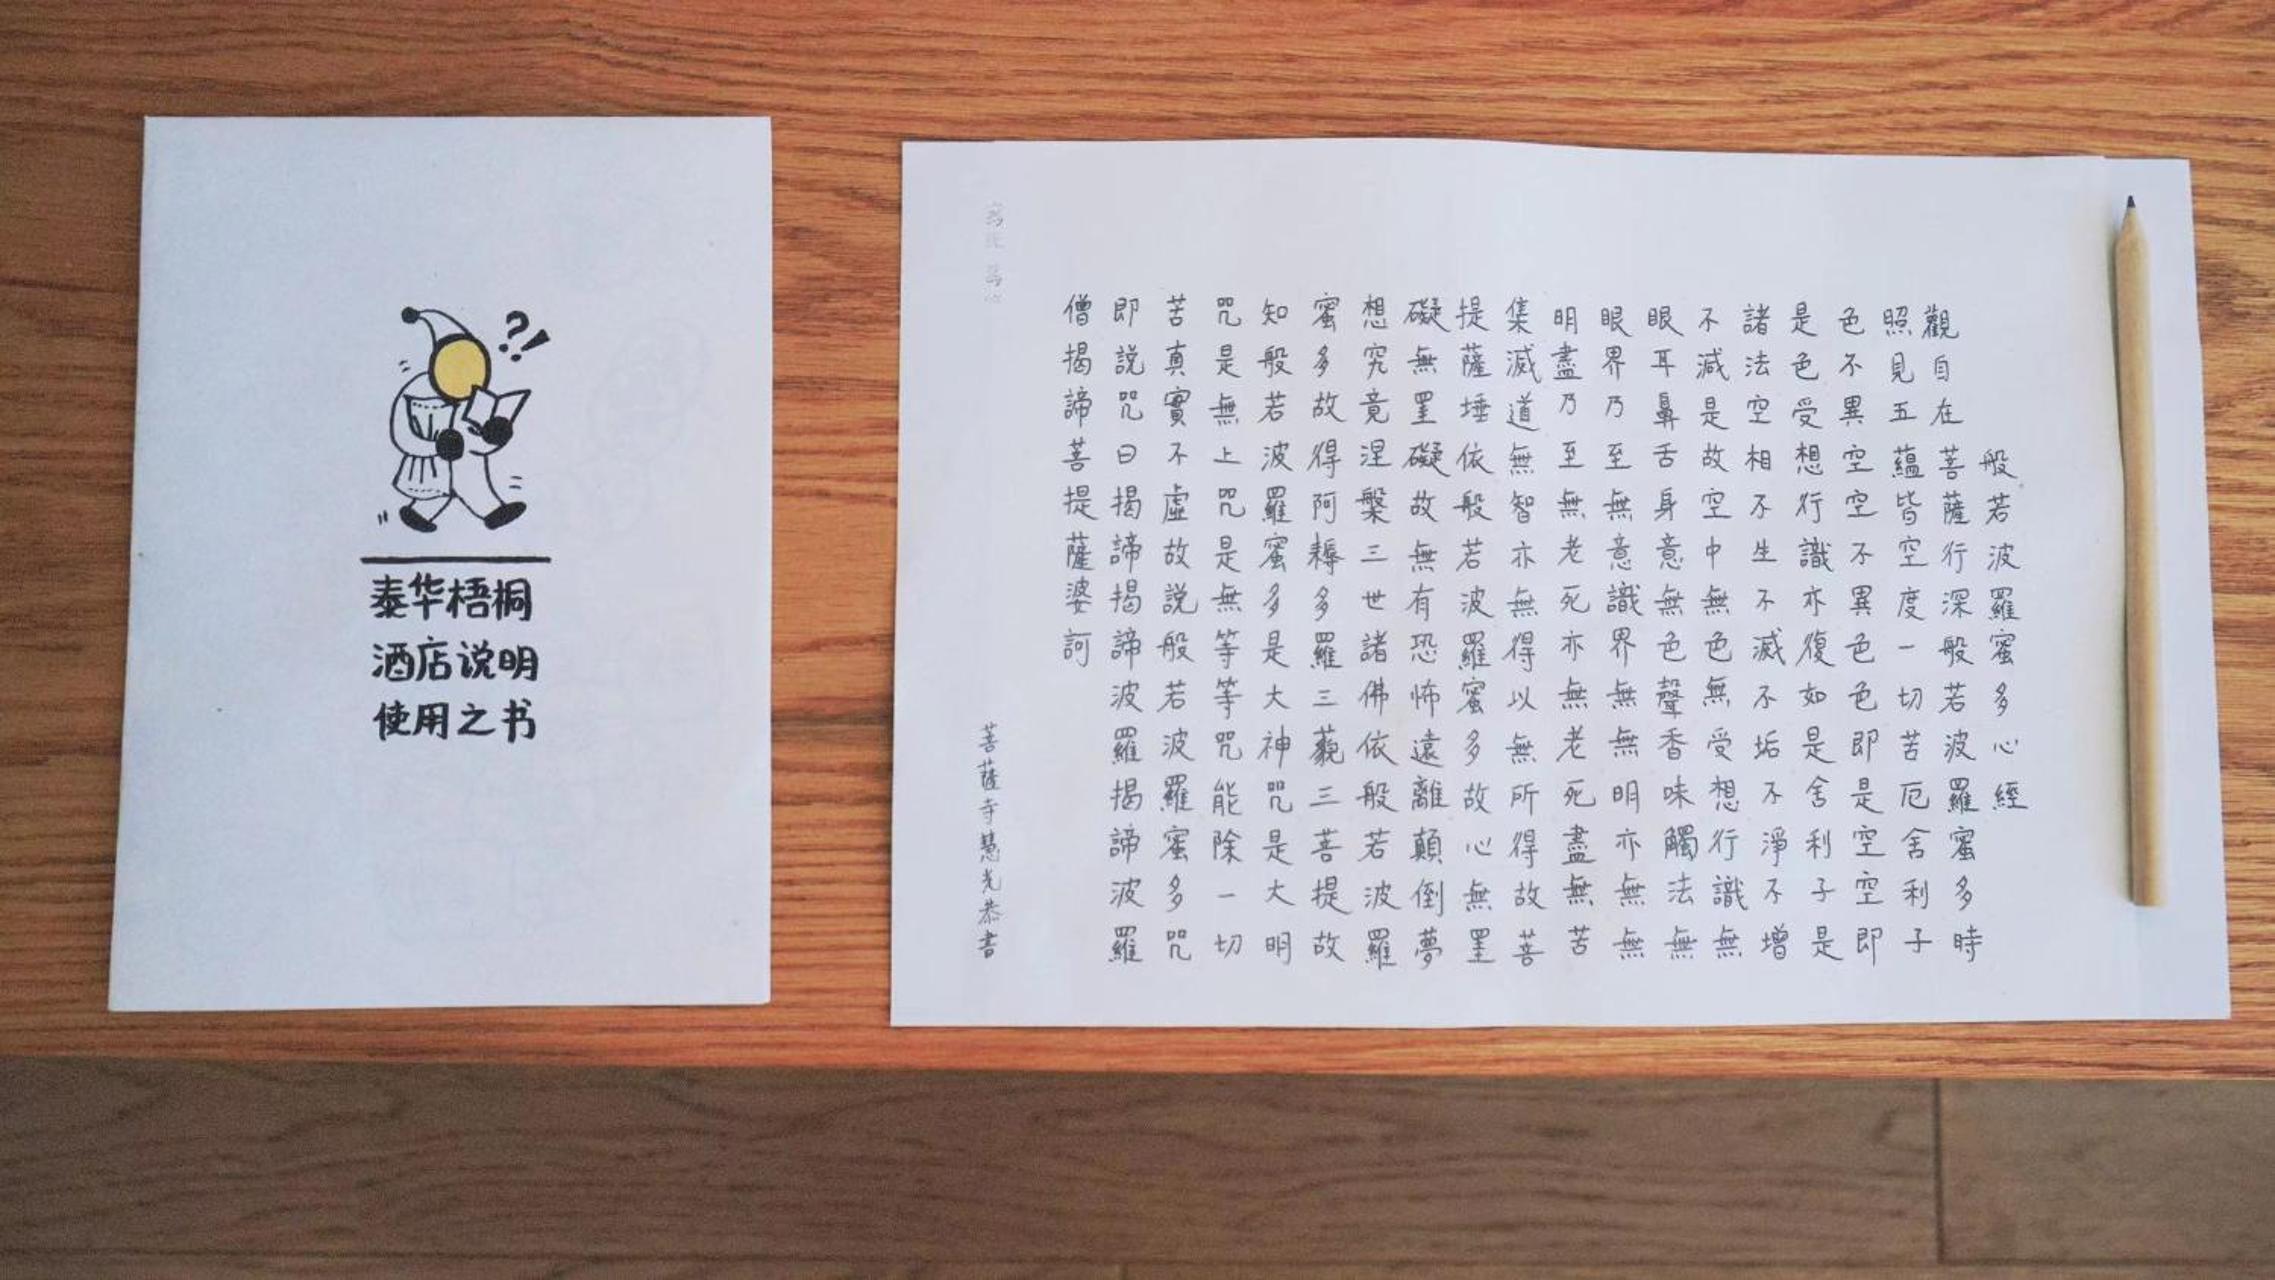 泰华梧桐
酒店说明
使用之书
般若波羅蜜多心經
觀自在菩薩行深般若波羅蜜多時
照見五蘊皆空度一切苦厄舍利子
色不異空空不異色色即是空空即
是色受想行識亦復如是舍利子是
諸法空相不生不滅不垢不淨不增
不減是故空中無色無受想行識無
眼耳鼻舌身意無色聲香味觸法無
眼界乃至無意識界無無明亦無無
明盡乃至無老死亦無老死盡無苦
集滅道無智亦無得以無所得故菩
提薩埵依般若波羅蜜多故心無罣
礙無罣礙故無有恐怖遠離顛倒夢
想究竟涅槃三世諸佛依般若波羅
蜜多故得阿耨多羅三藐三菩提故
知般若波羅蜜多是大神咒是大明
咒是無上咒是無等等咒能除一切
苦真實不虛故說般若波羅蜜多咒
即說咒曰揭諦揭諦波羅揭諦波羅
僧揭諦菩提薩婆訶
菩薩寺慧光恭書